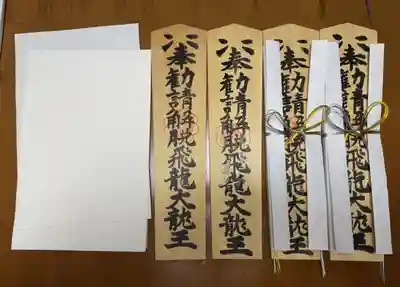 奉勧請解脱飛龍大龍王
奉勧請解脱飛龍大龍王
奉勧請解脱飛龍大龍王
奉勧請解脱飛龍大龍王